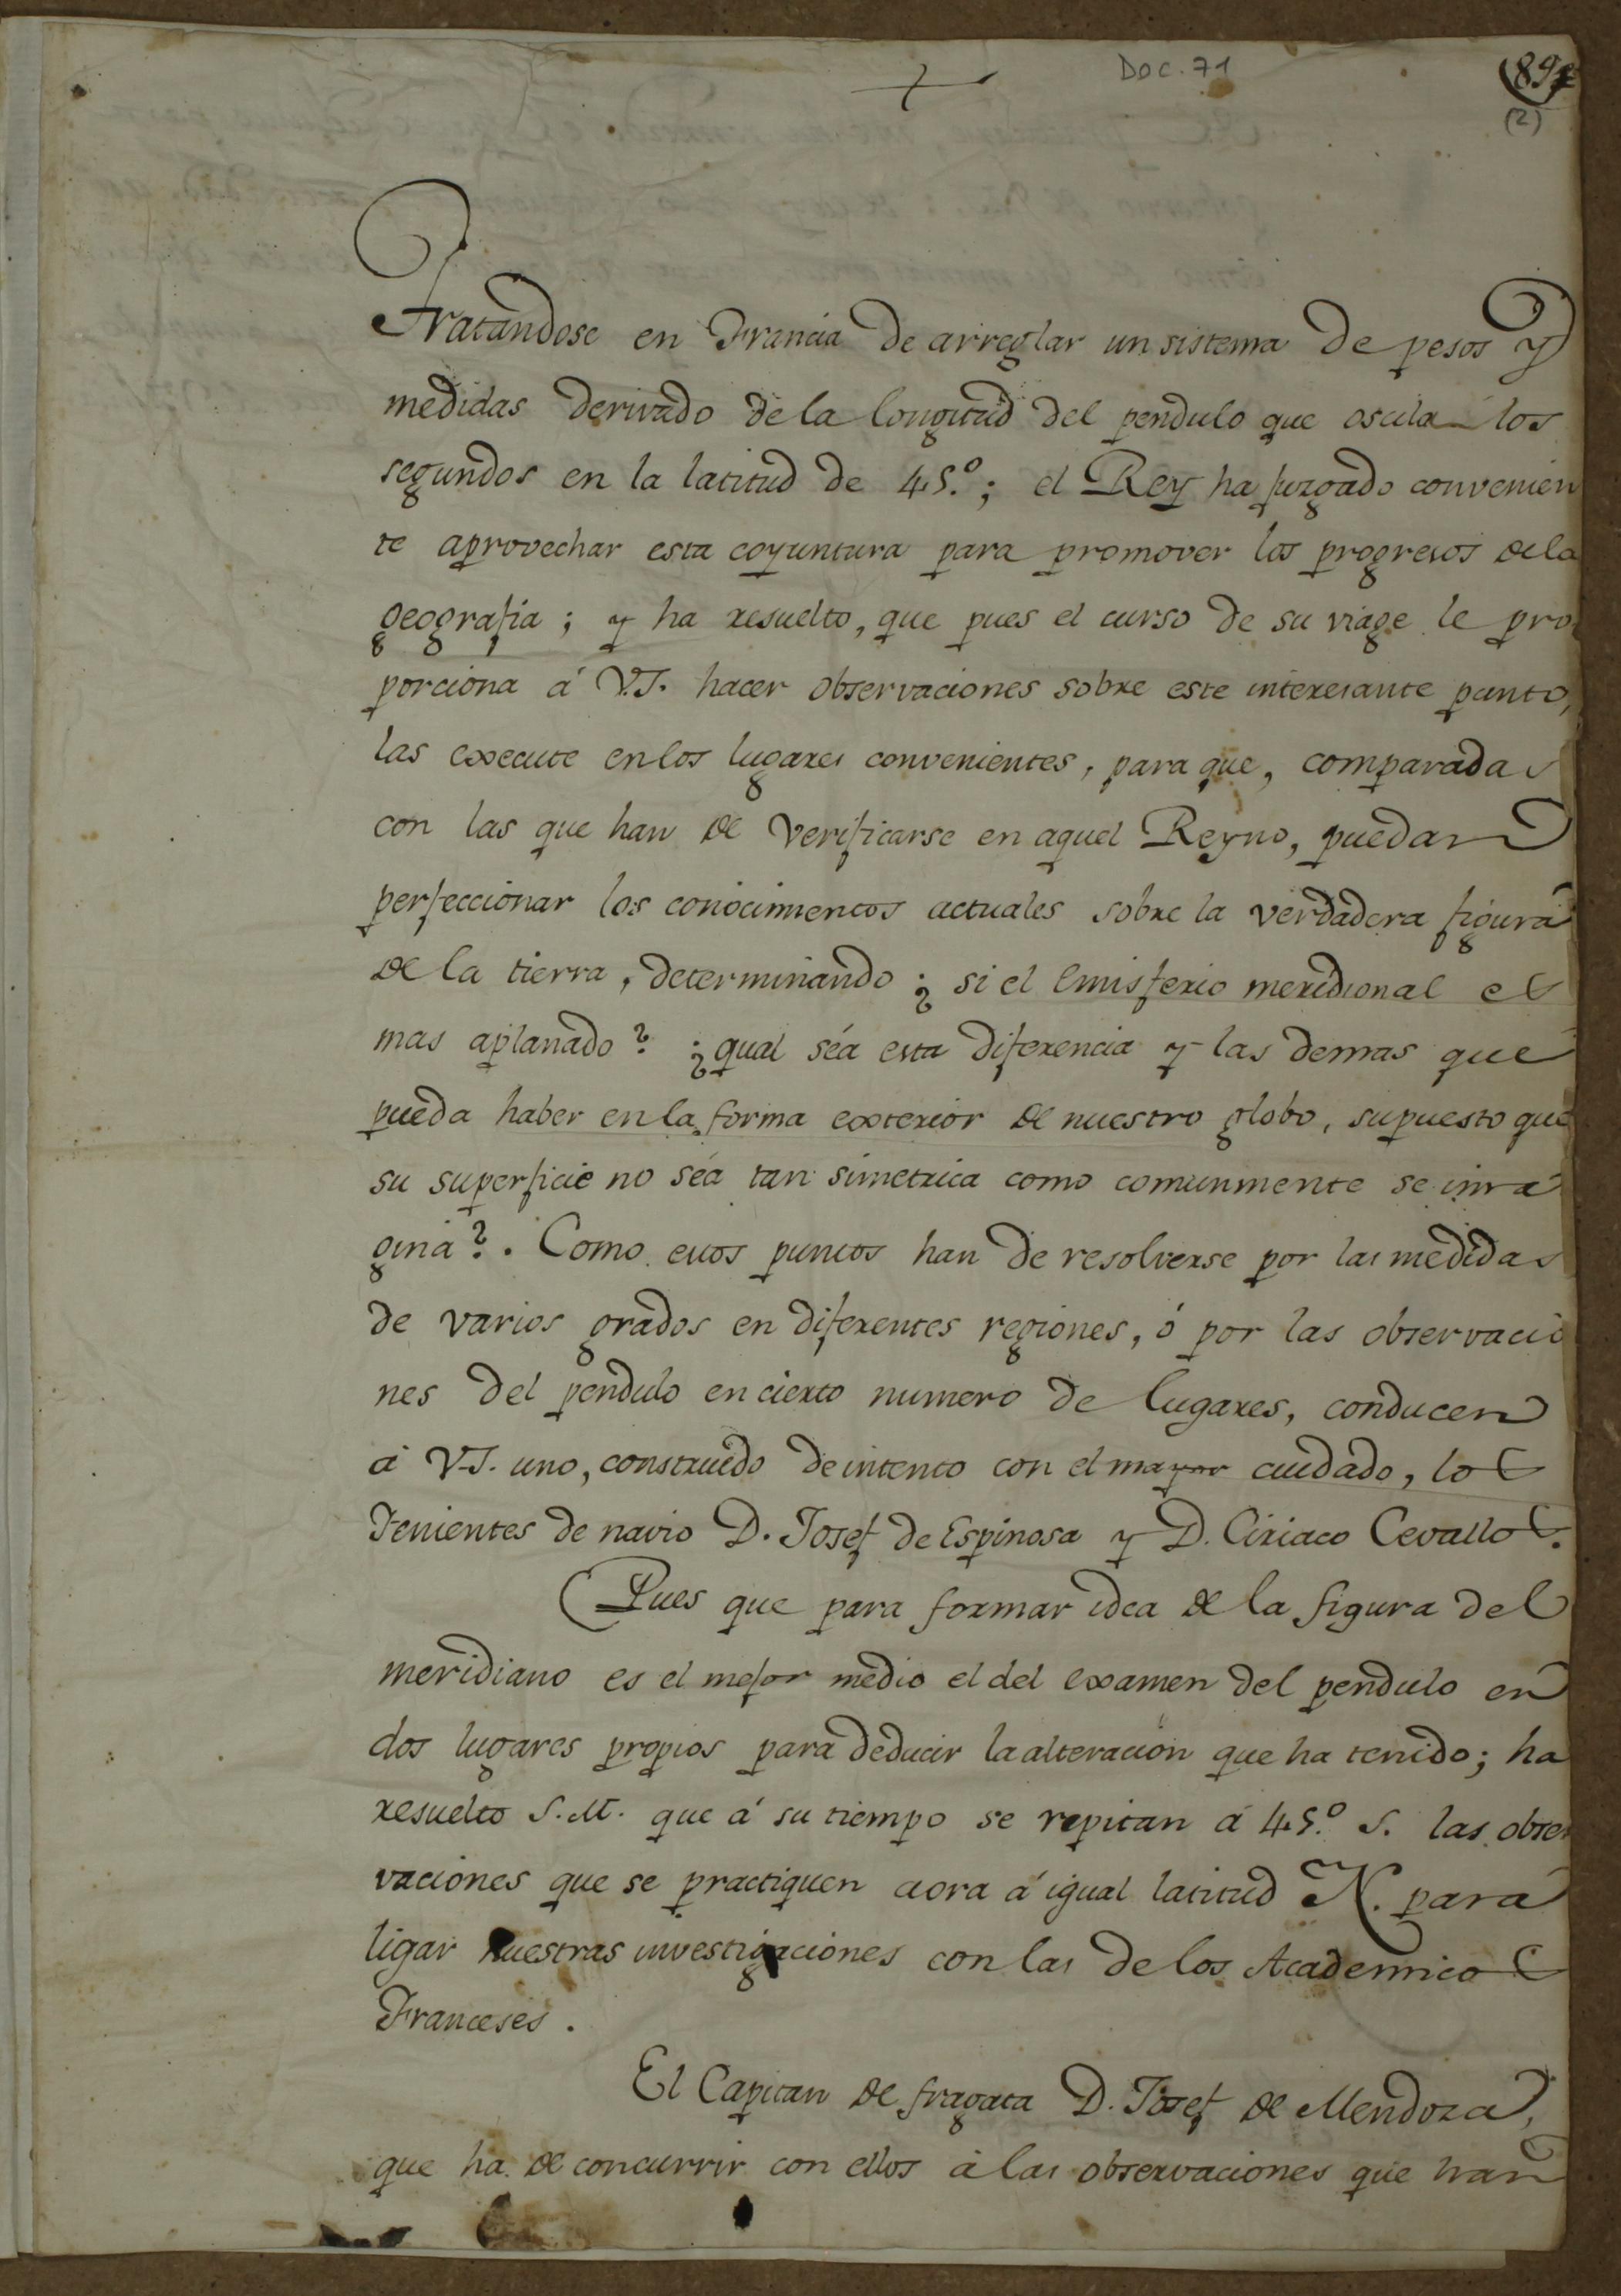 Doc. 71
89
(2)
Tratandose en Francia de arreglar un sistema de pesos y
medidas derivado de la longitud del pendulo que oscila los
segundos en la latitud de 45.º; el Rey ha juzgado convenien
te aprovechar esta coyuntura para promover los progresos de la
geografia; y ha resuelto, que pues el curso de su viage le pro
porciona á V.S. hacer observaciones sobre este interesante punto,
las execute en los lugares convenientes, para que, comparadas
con las que han de verificarse en aquel Reyno, puedan
perfeccionar los conocimientos actuales sobre la verdadera figura
de la tierra, determinando ¿ si el emisferio meridional es
mas aplanado? ¿qual séa esta diferencia y las demas que
pueda haber en la forma exterior de nuestro globo, supuesto que
su superficie no séa tan simetrica como comunmente se ima
gina?. Como estos puntos han de resolverse por las medidas
de varios grados en diferentes regiones, ó por las observacio
nes del pendulo en cierto numero de lugares, conducen
á V.S. uno, construido de intento con el mayor cuidado, los
Tenientes de navio D. Josef de Espinosa y D. Ciriaco Cevallos.
Pues que para formar idea de la figura del
meridiano es el mejor medio el del examen del pendulo en
dos lugares propios para deducir la alteracion que ha tenido; ha
resuelto S.M. que á su tiempo se repitan á 45.º S. las obser
vaciones que se practiquen aora á igual latitud N. para
ligar nuestras investigaciones con las de los Academicos
Franceses.
El Capitan de fragata D. Josef de Mendoza,
que ha de concurrir con ellos á las observaciones que han